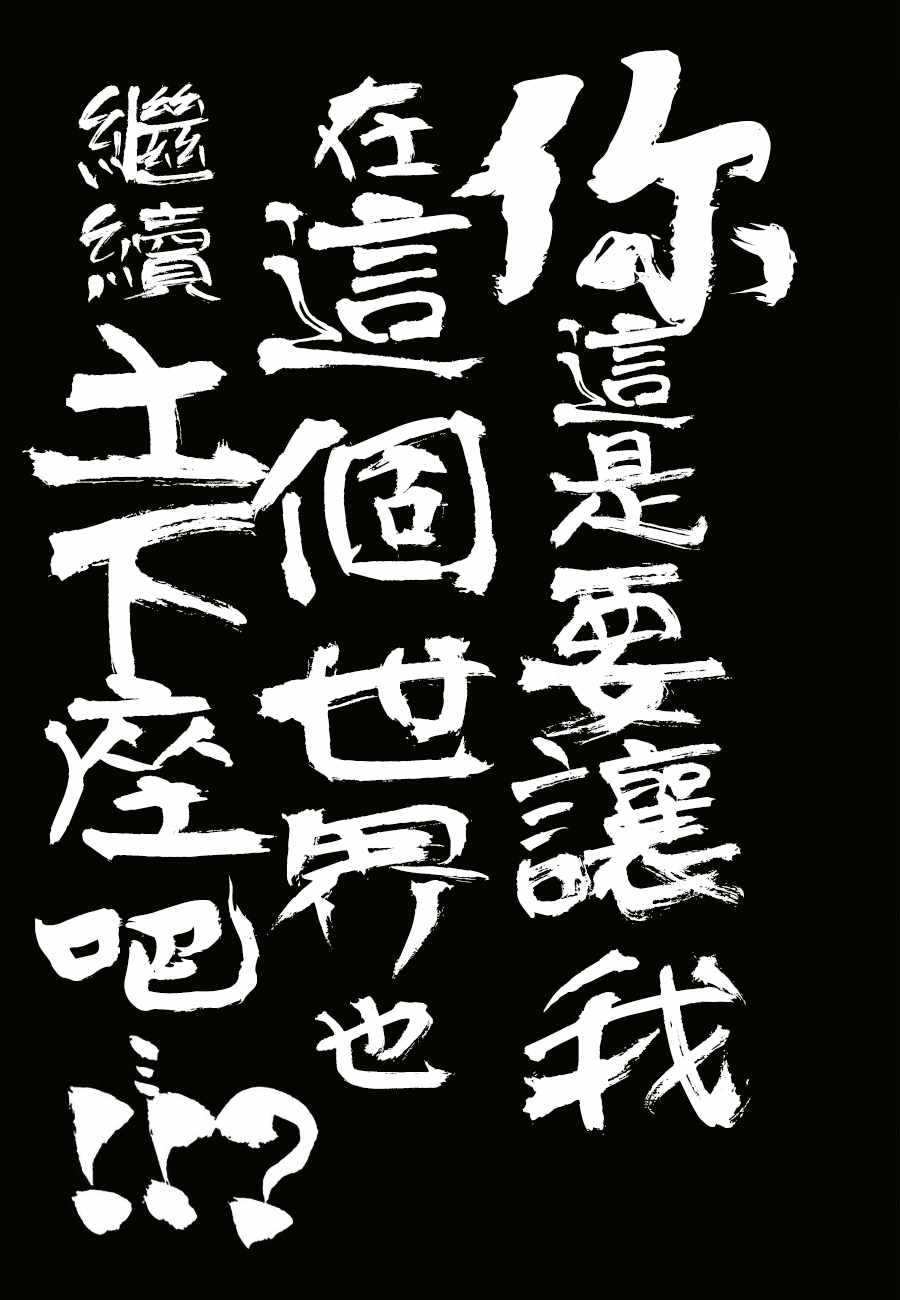 你這是要讓我
在這個世界也
繼續土下座吧…!!?